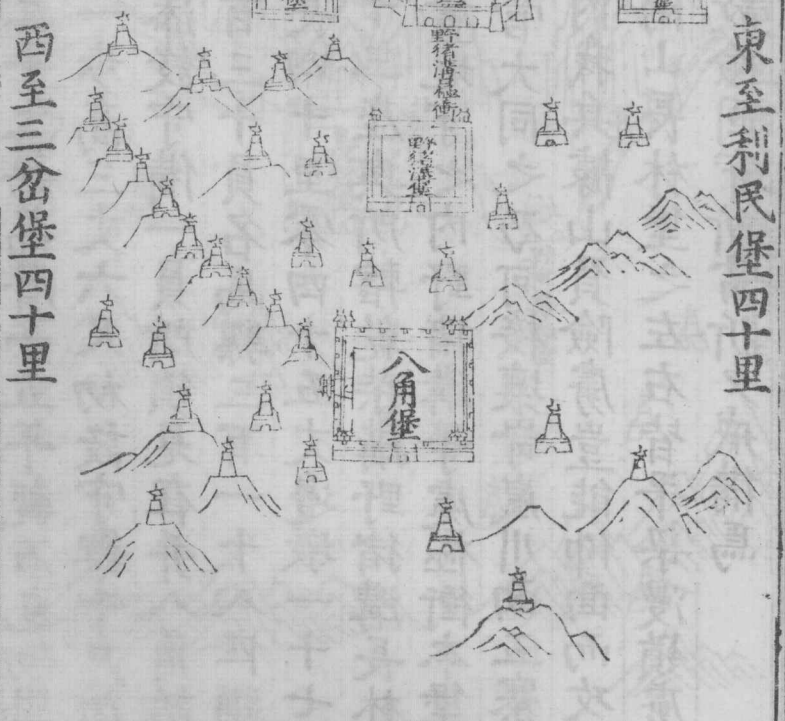 東至利民堡四十里
野猪溝極衝
野猪溝堡
八角堡
西至三岔堡四十里